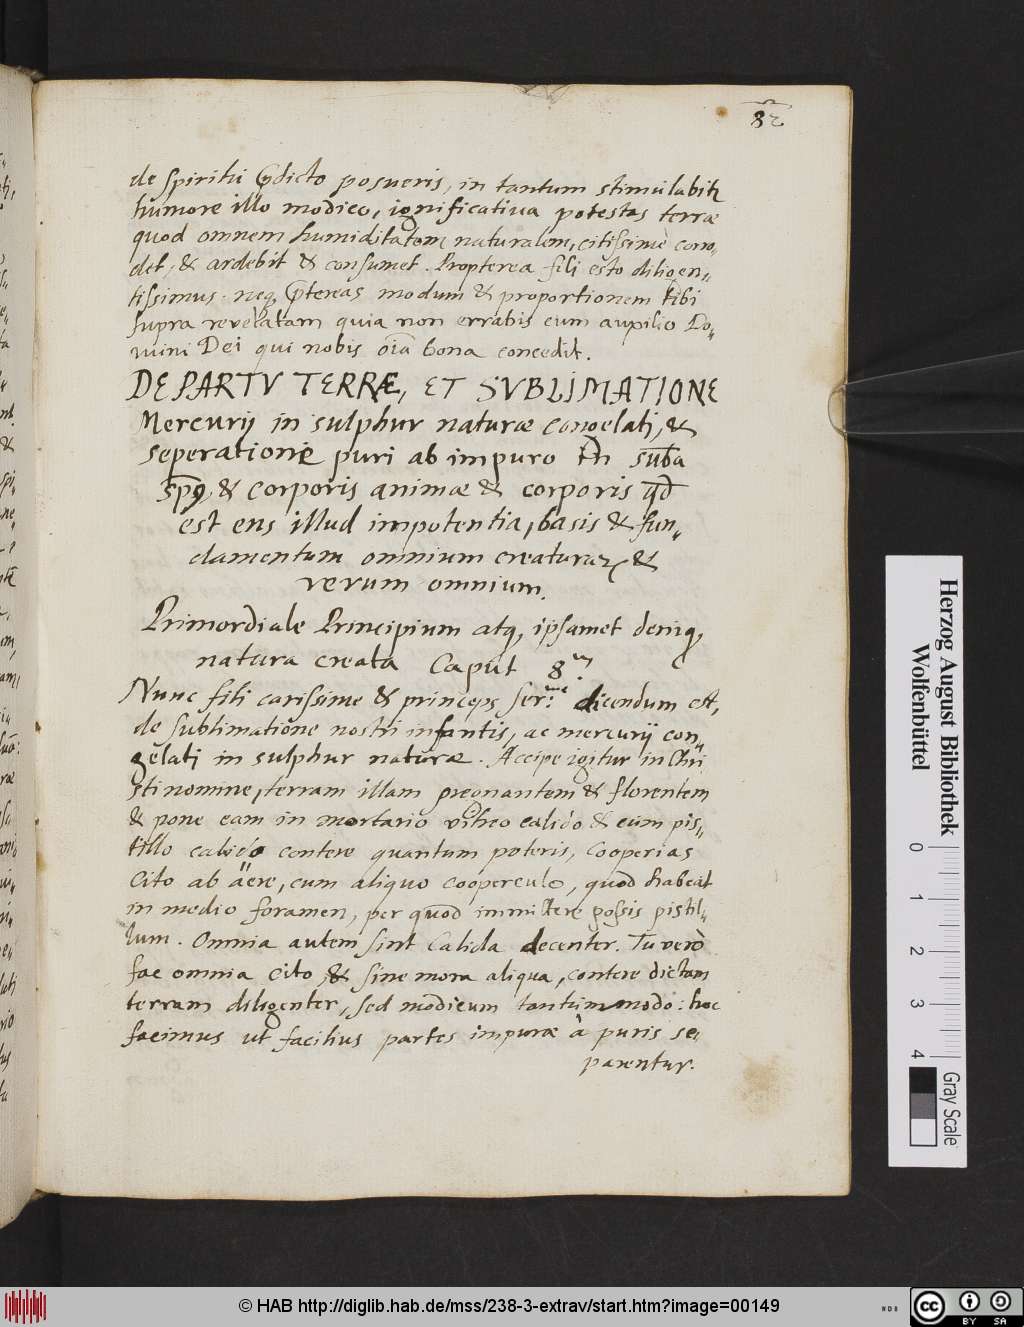 82
de spiritu p̄dicto posueris, in tantum stimulabit̃
humore illo modico, ignificatiua potestas terræ
quod omnem humiditatem naturalem, citissimè corro„
det, & ardebit & consumet. Propterea fili esto diligen„
tissimus. neq, p̄tereas modum & proportionem tibi
supra reuelatam quia non errabis cum auxilio Do„
mini Dei qui nobis oĩa bona concedit.
DE PARTV TERRÆ, ET SVBLIMATIONE
Mercurij in sulphur naturæ congelati, &
seperatione puri ab impuro
& corporis animæ & corporis qd̄
est ens illud impotentia, basis & fun„
damentum omnium creaturaꝝ &
rerum omnium.
Primordiale Principium atq, ipsamet deniq,
natura creata Caput 8.um
Nunc fili carissime & princeps Ser.me dicendum est,
de sublimatione nostri infantis, ac mercurij con„
gelati in sulphur naturæ. Accipe igitur in Chri
sti nomine, terram illam pregnantem & florentem
& pone eam in mortario vitreo calido & cum pis„
tillo calido contere quantum poteris, Cooperias
Cito ab äere, cum aliquo cooperculo, quod habeat
in medio foramen, per quod immittere possis pistil„
lum. Omnia autem sint Calida decenter. Tu verò
fac omnia Cito & sine mora aliqua, contere dictam
terram diligenter, sed modicum tantum modo: hoc
facimus ut facilius partes impuræ à puris se„
parentur.
Herzog August Bibliothek
Wolfenbüttel
0 1 2 3 4
Gray Scale
© HAB http://diglib.hab.de/mss/238-3-extrav/start.htm?image=00149
cc BY SA